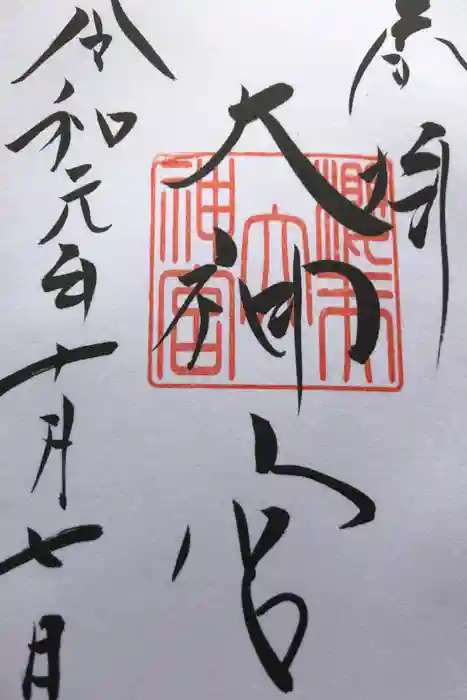 奉拝
大神宮
令和元年十月七日
大
神宮